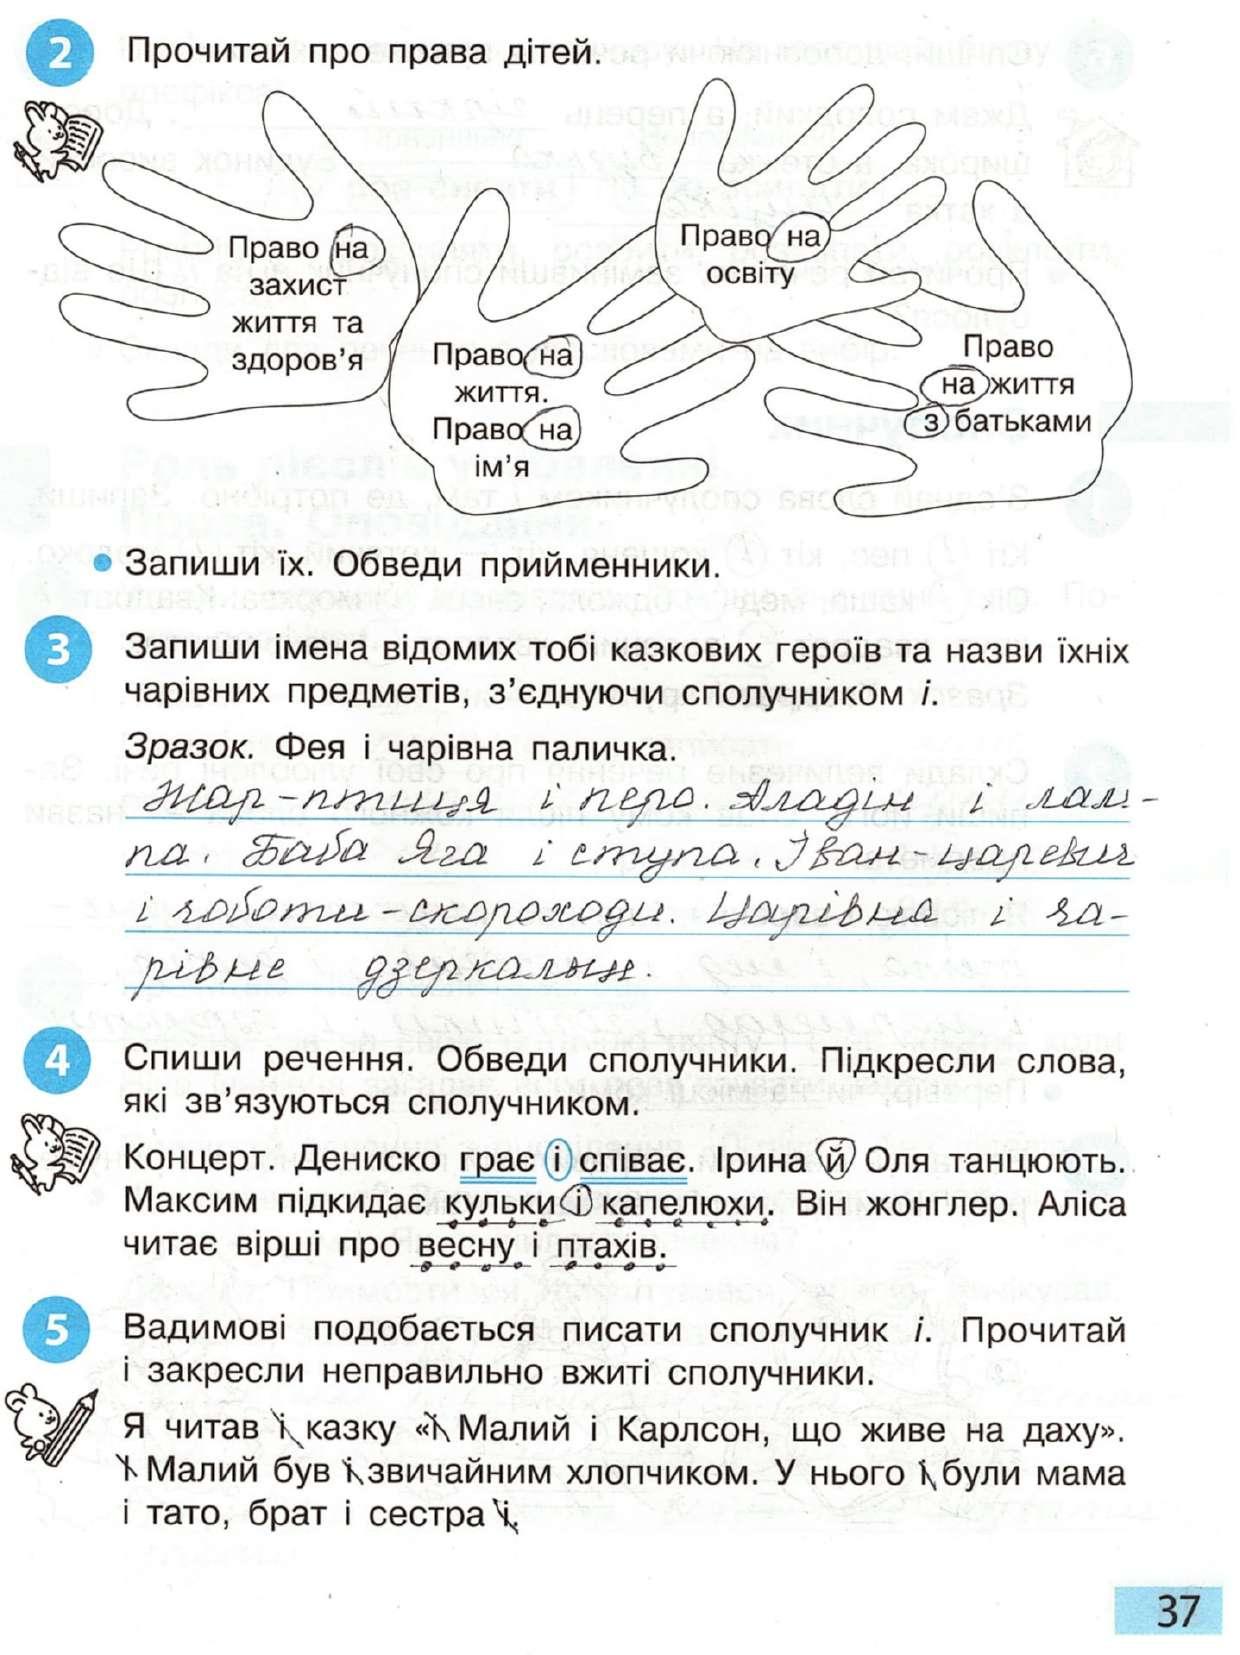 2 Прочитай про права дітей.
Право на
захист
життя та
здоров’я
Право на
життя.
Право на
ім’я
Право на
освіту
Право
на життя
з батьками
• Запиши їх. Обведи прийменники.
3 Запиши імена відомих тобі казкових героїв та назви їхніх
чарівних предметів, з’єднуючи сполучником і.
Зразок. Фея і чарівна паличка.
Жар-птиця і перо. Аладін і лам-
па. Баба Яга і ступа. Іван-царевич
і чоботи-скороходи. Царівна і ча-
рівне дзеркальце.
4 Спиши речення. Обведи сполучники. Підкресли слова,
які зв’язуються сполучником.
Концерт. Дениско грає і співає. Ірина й Оля танцюють.
Максим підкидає кульки і капелюхи. Він жонглер. Аліса
читає вірші про весну і птахів.
5 Вадимові подобається писати сполучник і. Прочитай
і закресли неправильно вжиті сполучники.
Я читав і казку «І Малий і Карлсон, що живе на даху».
І Малий був і звичайним хлопчиком. У нього і були мама
і тато, брат і сестра і.
37